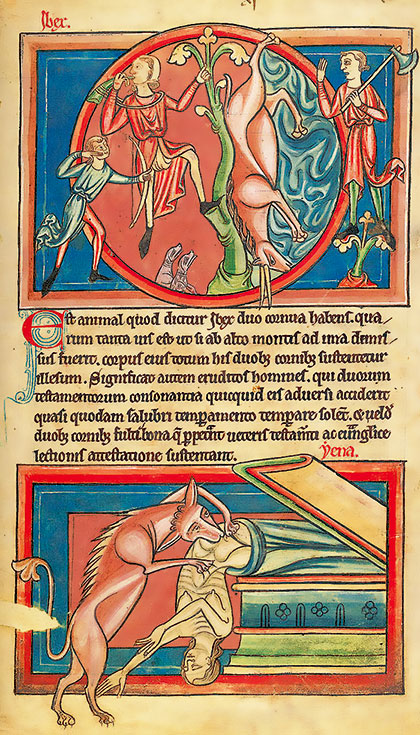 Iber.
Est animal quod dicitur Iber duo cornua habens. qua
rum tanta uis est ut si ab alto montis ad ima dimis
sus fuerit. corpus eius totum his duobꝫ cornibꝫ sustentetur
illesum. Significat autem eruditos homines. qui duorum
testamentorum consonantia quicquid eis aduersi acciderit
quasi quodam salubri temꝑamento temꝑare solent.
duobꝫ cornibꝫ fulti bona q̄ ueteris testam̄ti ac
lectionis attestatione sustentant.
Yena.